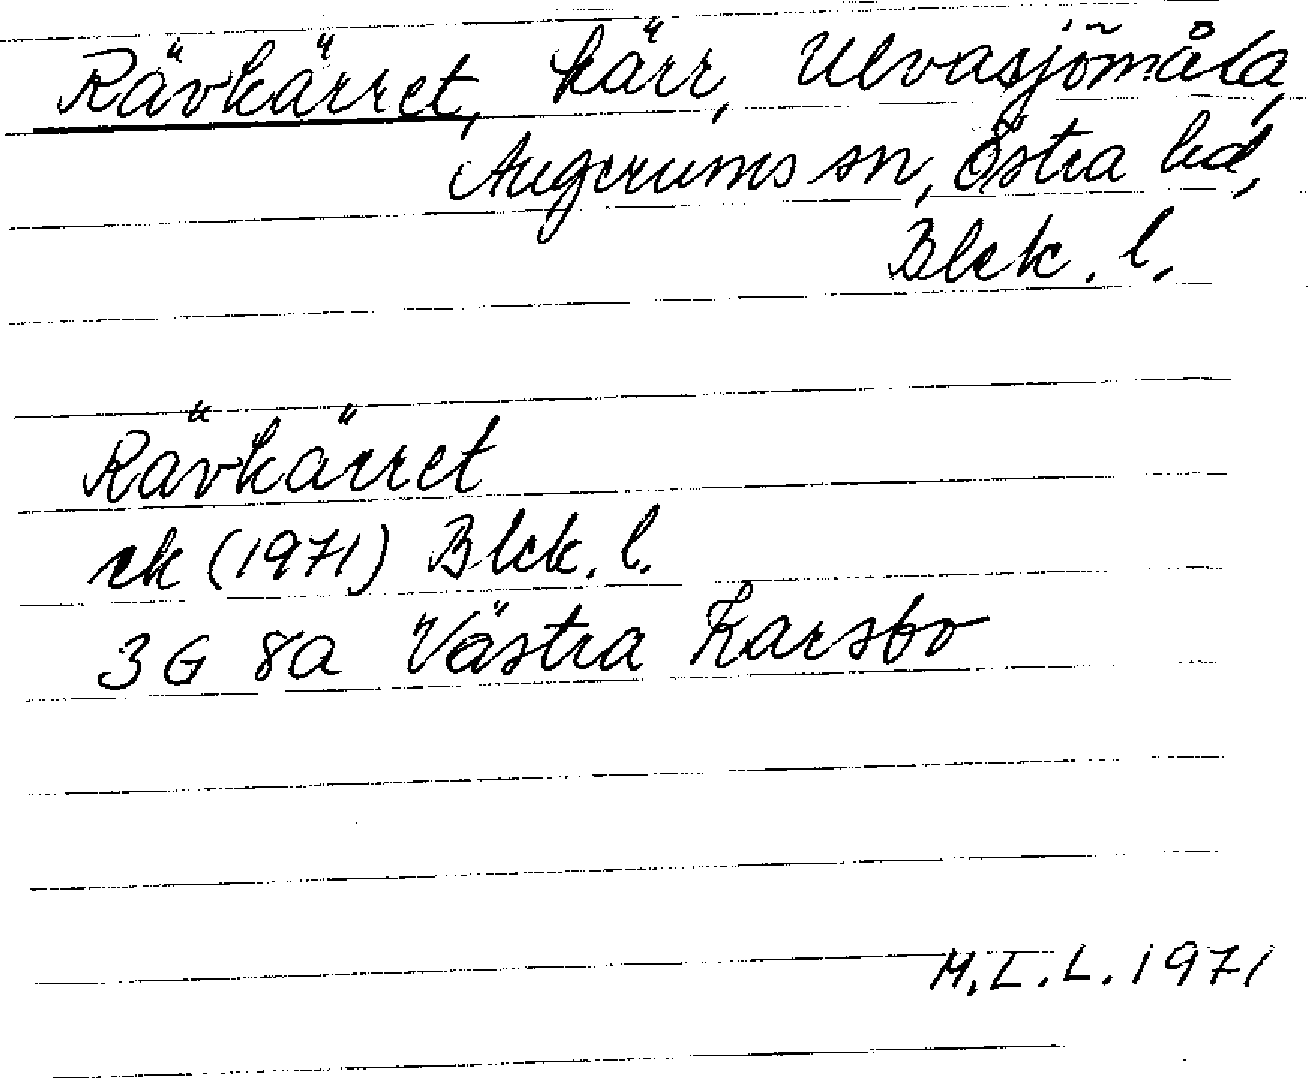 Rävkärret, kärr, Ulvasjömåla,
Augerums sn, Östra hd,
Blek. l.
Rävkärret
ek (1971) Blek. l.
3G 8a Västra Karsbo
M.I.L. 1971